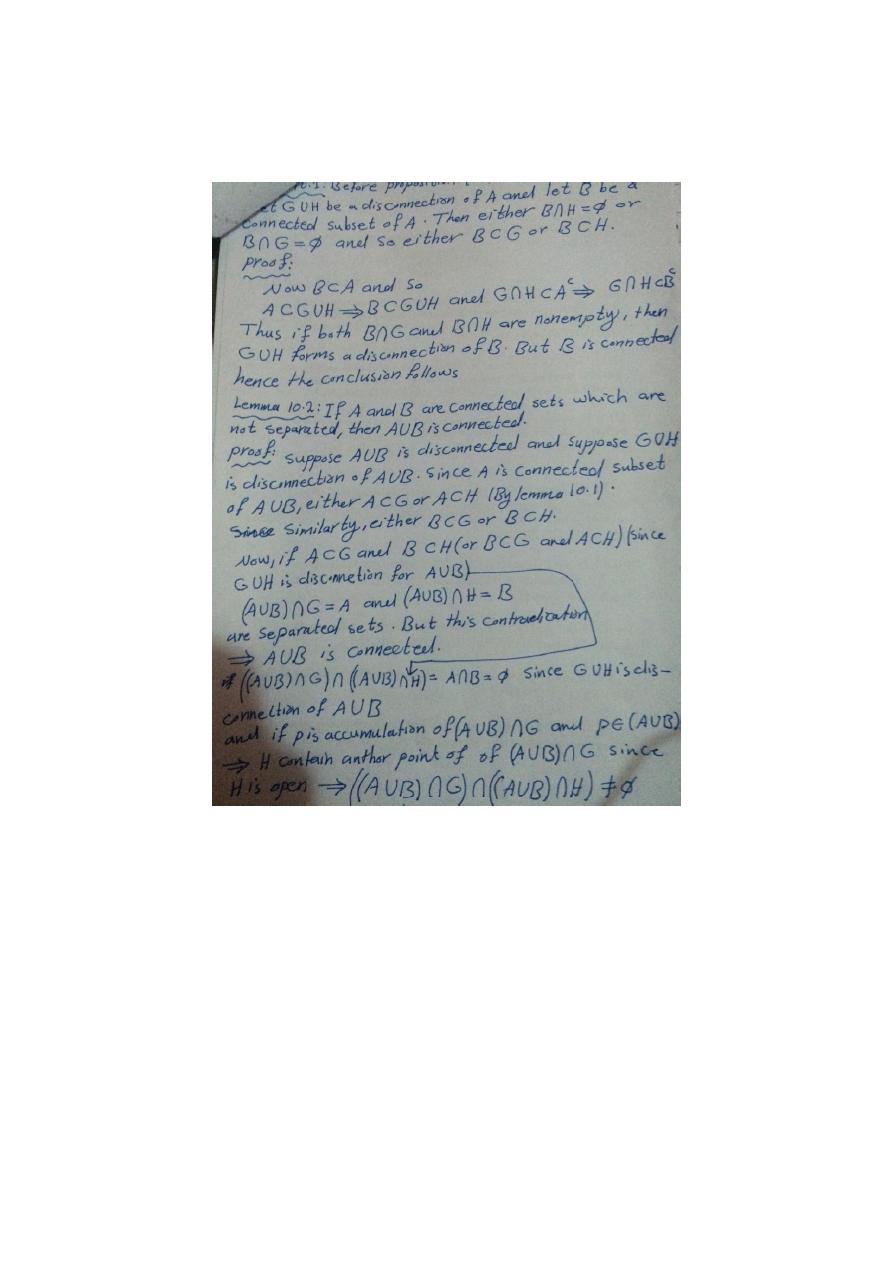 .1: Before
et G∪H be a disconnection of A and let B be a
connected subset of A. Then either B∩H=∅ or
B∩G=∅ and so either B⊂G or B⊂H.
proof:
Now B⊂A and so
A⊂G∪H ⟹ B⊂G∪H and G∩H⊂Aᶜ ⟹ G∩H⊂Bᶜ
Thus if both B∩G and B∩H are nonempty, then
G∪H forms a disconnection of B. But B is connected
hence the conclusion follows
Lemma 10.2: If A and B are connected sets which are
not separated, then A∪B is connected.
proof: suppose A∪B is disconnected and suppose G∪H
is disconnection of A∪B. Since A is connected subset
of A∪B, either A⊂G or A⊂H (By lemma 10.1).
Since Similarty, either B⊂G or B⊂H.
Now, if A⊂G and B⊂H (or B⊂G and A⊂H) (since
G∪H is disconnetion for A∪B)
(A∪B)∩G=A and (A∪B)∩H=B
are separated sets. But this contradication
⟹ A∪B is connected.
if ((A∪B)∩G)∩((A∪B)∩H)=A∩B=∅ since G∪H is dis-
connection of A∪B
and if p is accumulation of (A∪B)∩G and p∈(A∪B)
⟹ H contain anthor point of of (A∪B)∩G since
H is open ⟹ ((A∪B)∩G)∩((A∪B)∩H)≠∅